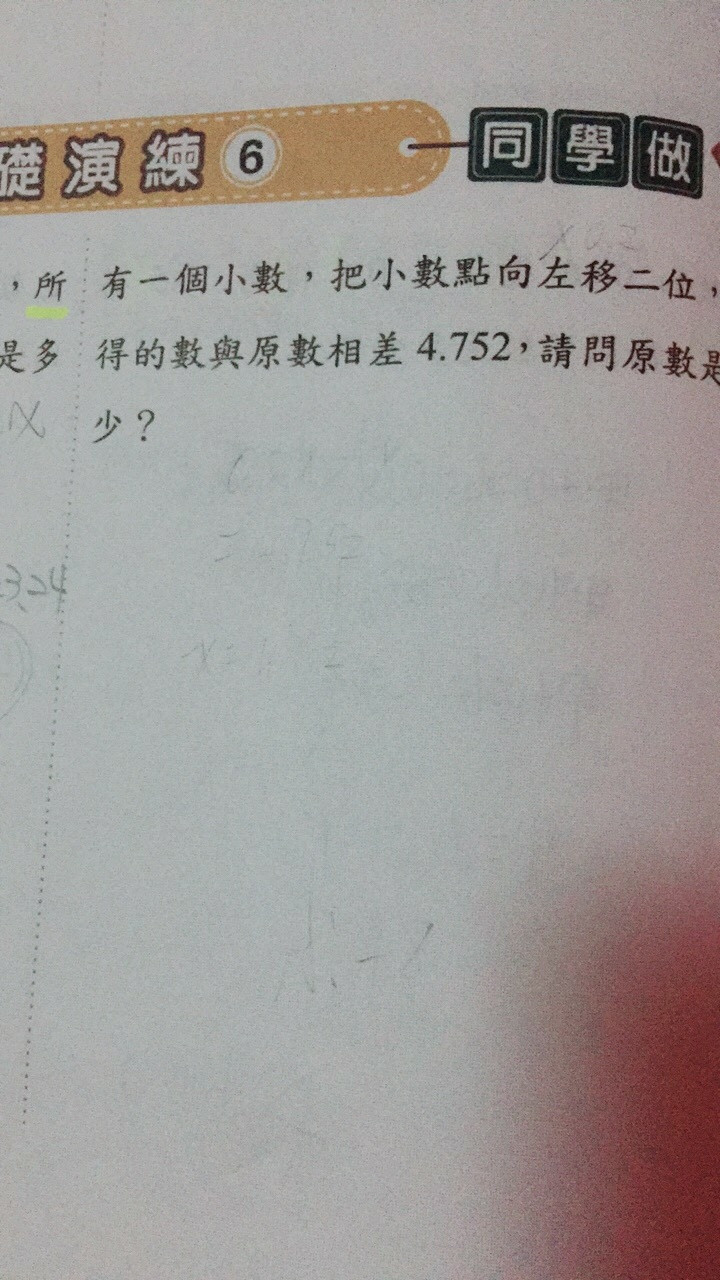 礎演練6 同學做
，所
是多
有一個小數，把小數點向左移二位，
得的數與原數相差4.752，請問原數是
少？
3.24